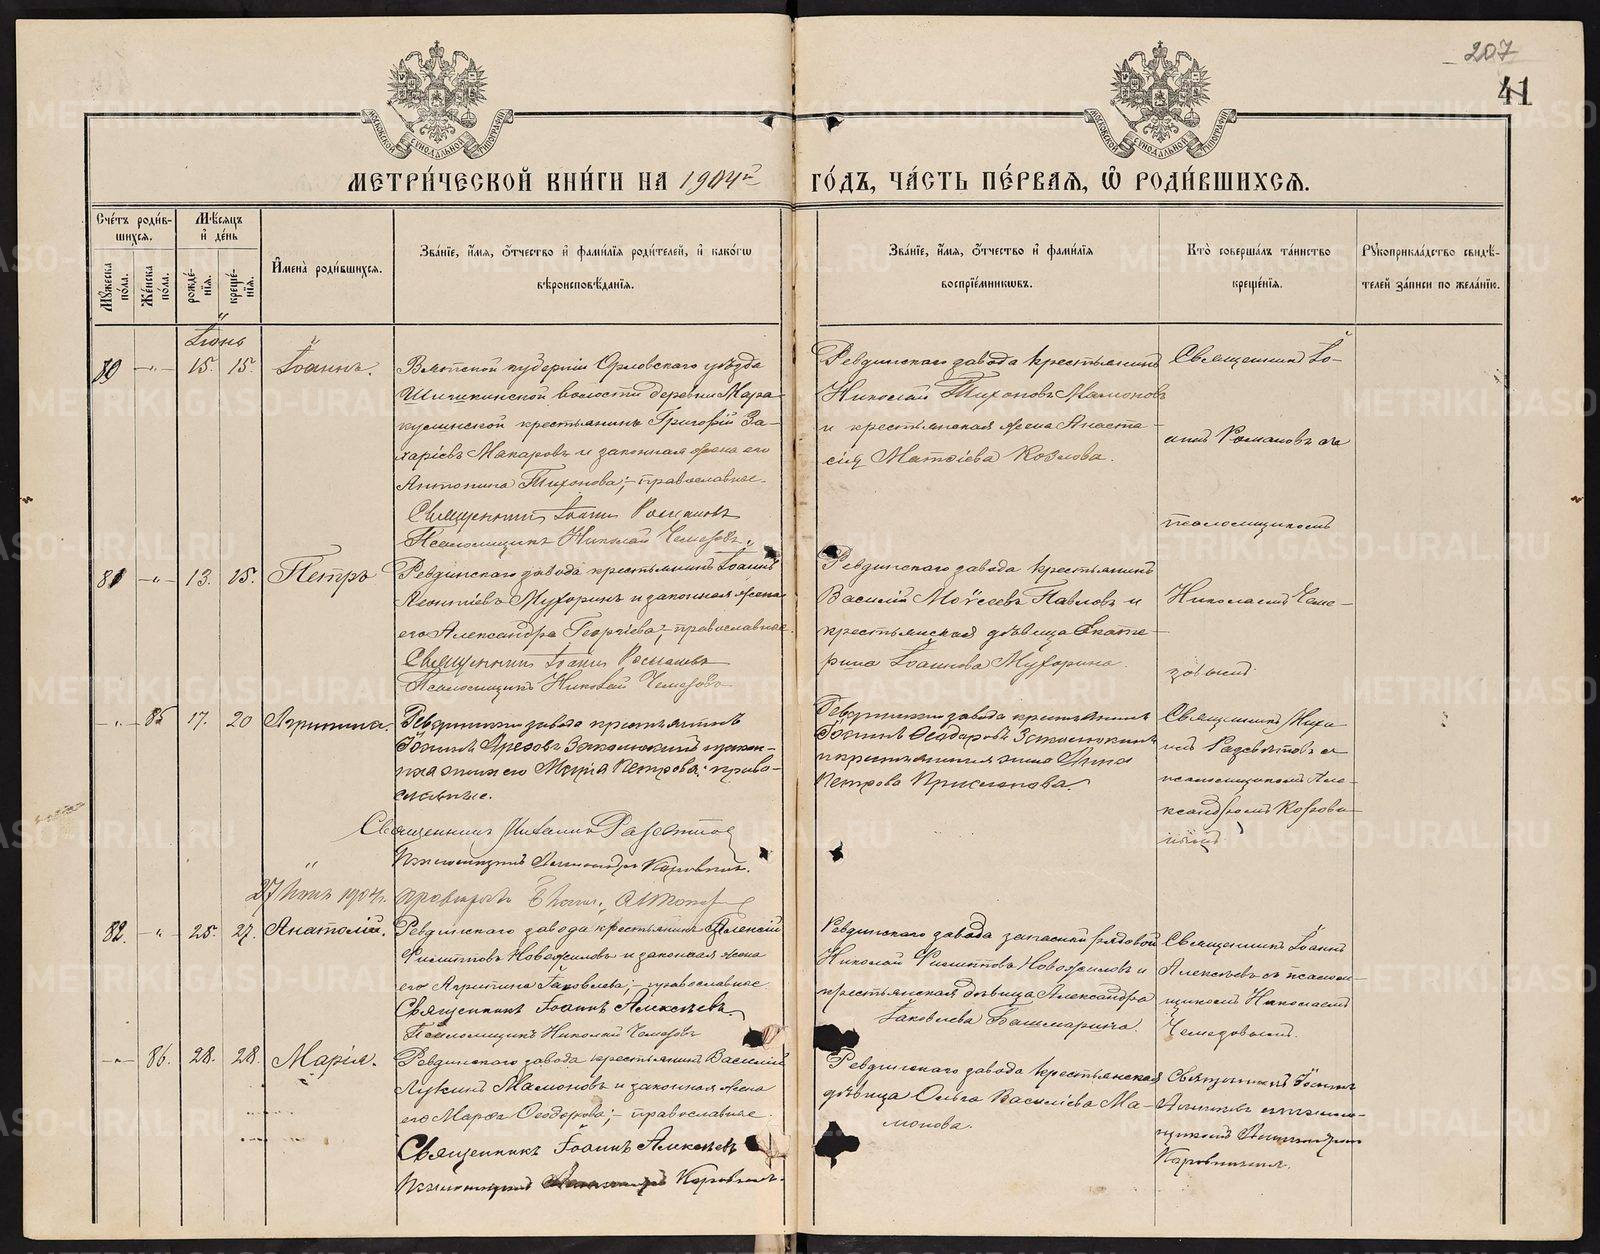 207
41
МОСКОВСКОЙ СѴНОДАЛЬНОЙ ТИПОГРАФІИ
МОСКОВСКОЙ СѴНОДАЛЬНОЙ ТИПОГРАФІИ
МЕТРИ́ЧЕСКОЙ КНИ́ГИ НА 1904й
ГО́ДЪ, ЧА́СТЬ ПЕ́РВАѦ, Ѡ҆ РОДИ́ВШИХСѦ.
Сче́тъ роди́в-
шихсѧ.
Мꙋ́жеска по́ла.
Же́нска по́ла.
Мѣ́сѧцъ
и҆ де́нь
рожде́-
нїѧ.
креще́-
нїѧ.
И҆мена̀ роди́вшихсѧ.
Зва́нїе, и҆́мѧ, ѻ҆́тчество и҆ фами́лїѧ роди́телей, и҆ како́гѡ
вѣроисповѣ́данїѧ.
Зва́нїе, и҆́мѧ, ѻ҆́тчество и҆ фами́лїѧ
воспрїе́мникѡвъ.
Кто̀ соверша́лъ та́инство
креще́нїѧ.
Рꙋкоприкла́дство свидѣ́-
телей за́писи по жела́нїю.
Іюнь
80 -"- 15. 15. Іоаннъ.
Вятской губерніи Орловскаго уѣзда
Шишкинской волости деревни Мара
кулинской крестьянинъ Григорій За-
харіевъ Макаровъ и законная жена его
Антонина Тихонова; - православные.
Священникъ Іоаннъ Романовъ
Псаломщикъ Николай Чемезовъ.
Ревдинскаго завода крестьянинъ
Николай Тихоновъ Мамоновъ
и крестьянская жена Анаста-
сія Матѳіева Козлова.
Священникъ Іо-
аннъ Романовъ съ
псаломщикомъ
81 -"- 13. 15. Петръ
Ревдинскаго завода крестьянинъ Іоаннъ
Леонтіевъ Мухоринъ и законная жена
его Александра Георгіева; - православные.
Священникъ Іоаннъ Романовъ
Псаломщикъ Николай Чемезовъ
Ревдинскаго завода крестьянинъ
Василій Моѵсеевъ Павловъ и
крестьянская дѣвица Екате-
рина Іоаннова Мухорина.
Николаемъ Чеме-
зовымъ
-"- 85 17. 20 Агрипина.
Ревдинскаго завода крестьянинъ
Іоаннъ
жена его Марія Петрова; - право-
славные.
Священникъ Михаилъ
Псаломщикъ Александръ Коровинъ.
Ревдинскаго завода крестьянинъ
Іоаннъ Ѳеодоровъ
и крестьянская жена Анна
Петрова
Священникъ Миха-
илъ съ
псаломщикомъ Але-
ксандромъ Корови-
нымъ
27 Іюня 1904г.
82. -"- 25. 27. Анатолій.
Ревдинскаго завода крестьянинъ Алексій
Филипповъ Новожиловъ и законная жена
его Агрипина Іаковлева; - православные
Священникъ Іоаннъ Алексѣевъ
Псаломщикъ Николай Чемезовъ
Ревдинскаго завода запасной рядовой
Николай Филипповъ Новожиловъ и
крестьянская дѣвица Александра
Іаковлева Башмарина.
Священникъ Іоаннъ
Алексѣевъ съ псалом-
щикомъ Николаемъ
Чемезовымъ.
-"- 86. 28. 28 Марія.
Ревдинскаго завода крестьянинъ Василій
Лукинъ Мамоновъ и законная жена
его Марѳа Ѳеодорова; - православные.
Священникъ Іоаннъ Алексѣевъ
Псаломщикъ Коровинъ.
Ревдинскаго завода крестьянская
дѣвица Ольга Василіева Ма-
монова.
Священникъ Іоаннъ
Алексѣевъ съ псалом-
щикомъ Александромъ
Коровинымъ.
METRIKI.GASO-URAL.RU